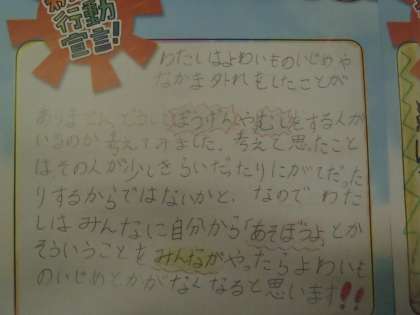 行動
宣言!
わたしはよわいものいじめや
なかま外れをしたことが
ありません。どうしてぼうげんやむしをする人が
いるのか考えてみました。考えて思ったこと
はその人が少しきらいだったりにがてだった
りするからではないかと、なのでわた
しはみんなに自分から「あそぼうよ」とか
そういうことをみんながやったらよわいも
のいじめとかがなくなると思います!!